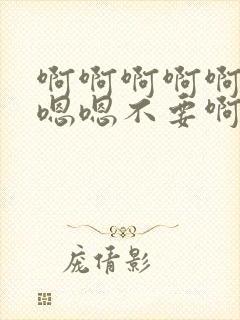 啊啊啊啊啊
嗯嗯不要啊
庞倩影